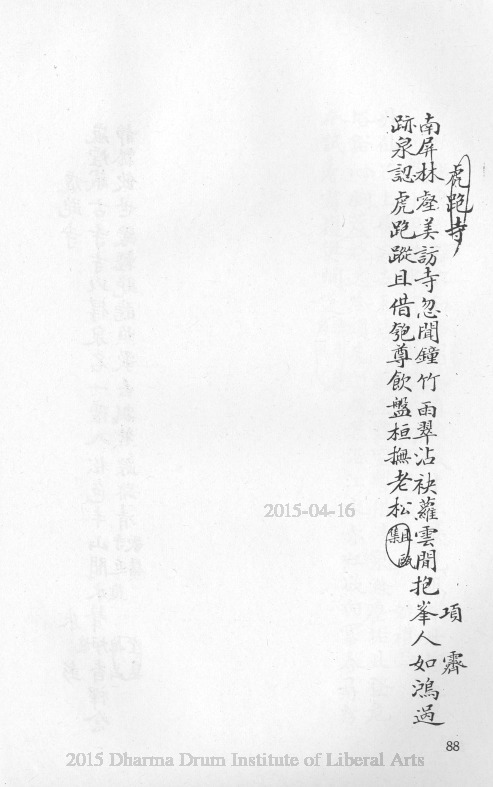 虎跑寺
項霽
南屏林壑美訪寺忽聞鐘竹雨翠沾袂蘿雲閒抱峯人如鴻過
跡泉認虎跑蹤且借匏尊飲盤桓撫老松
2015-04-16
88
2015 Dharma Drum Institute of Liberal Arts